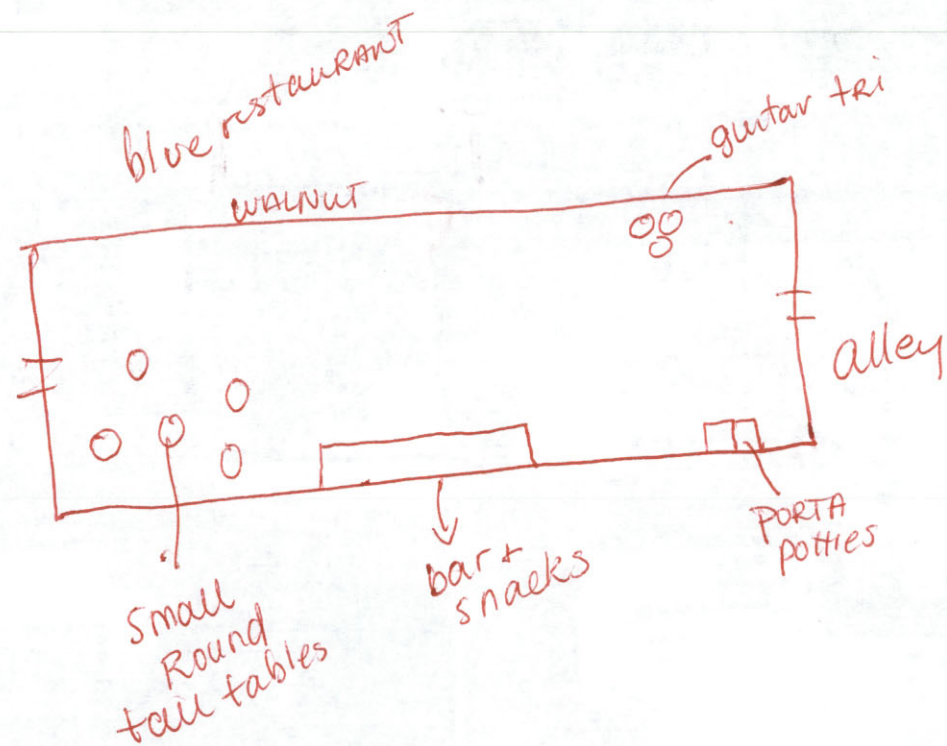 blue restauRANT
WALNUT
guitar tRi
alley
PORTA
potties
bar +
snacks
Small
Round
tall tables